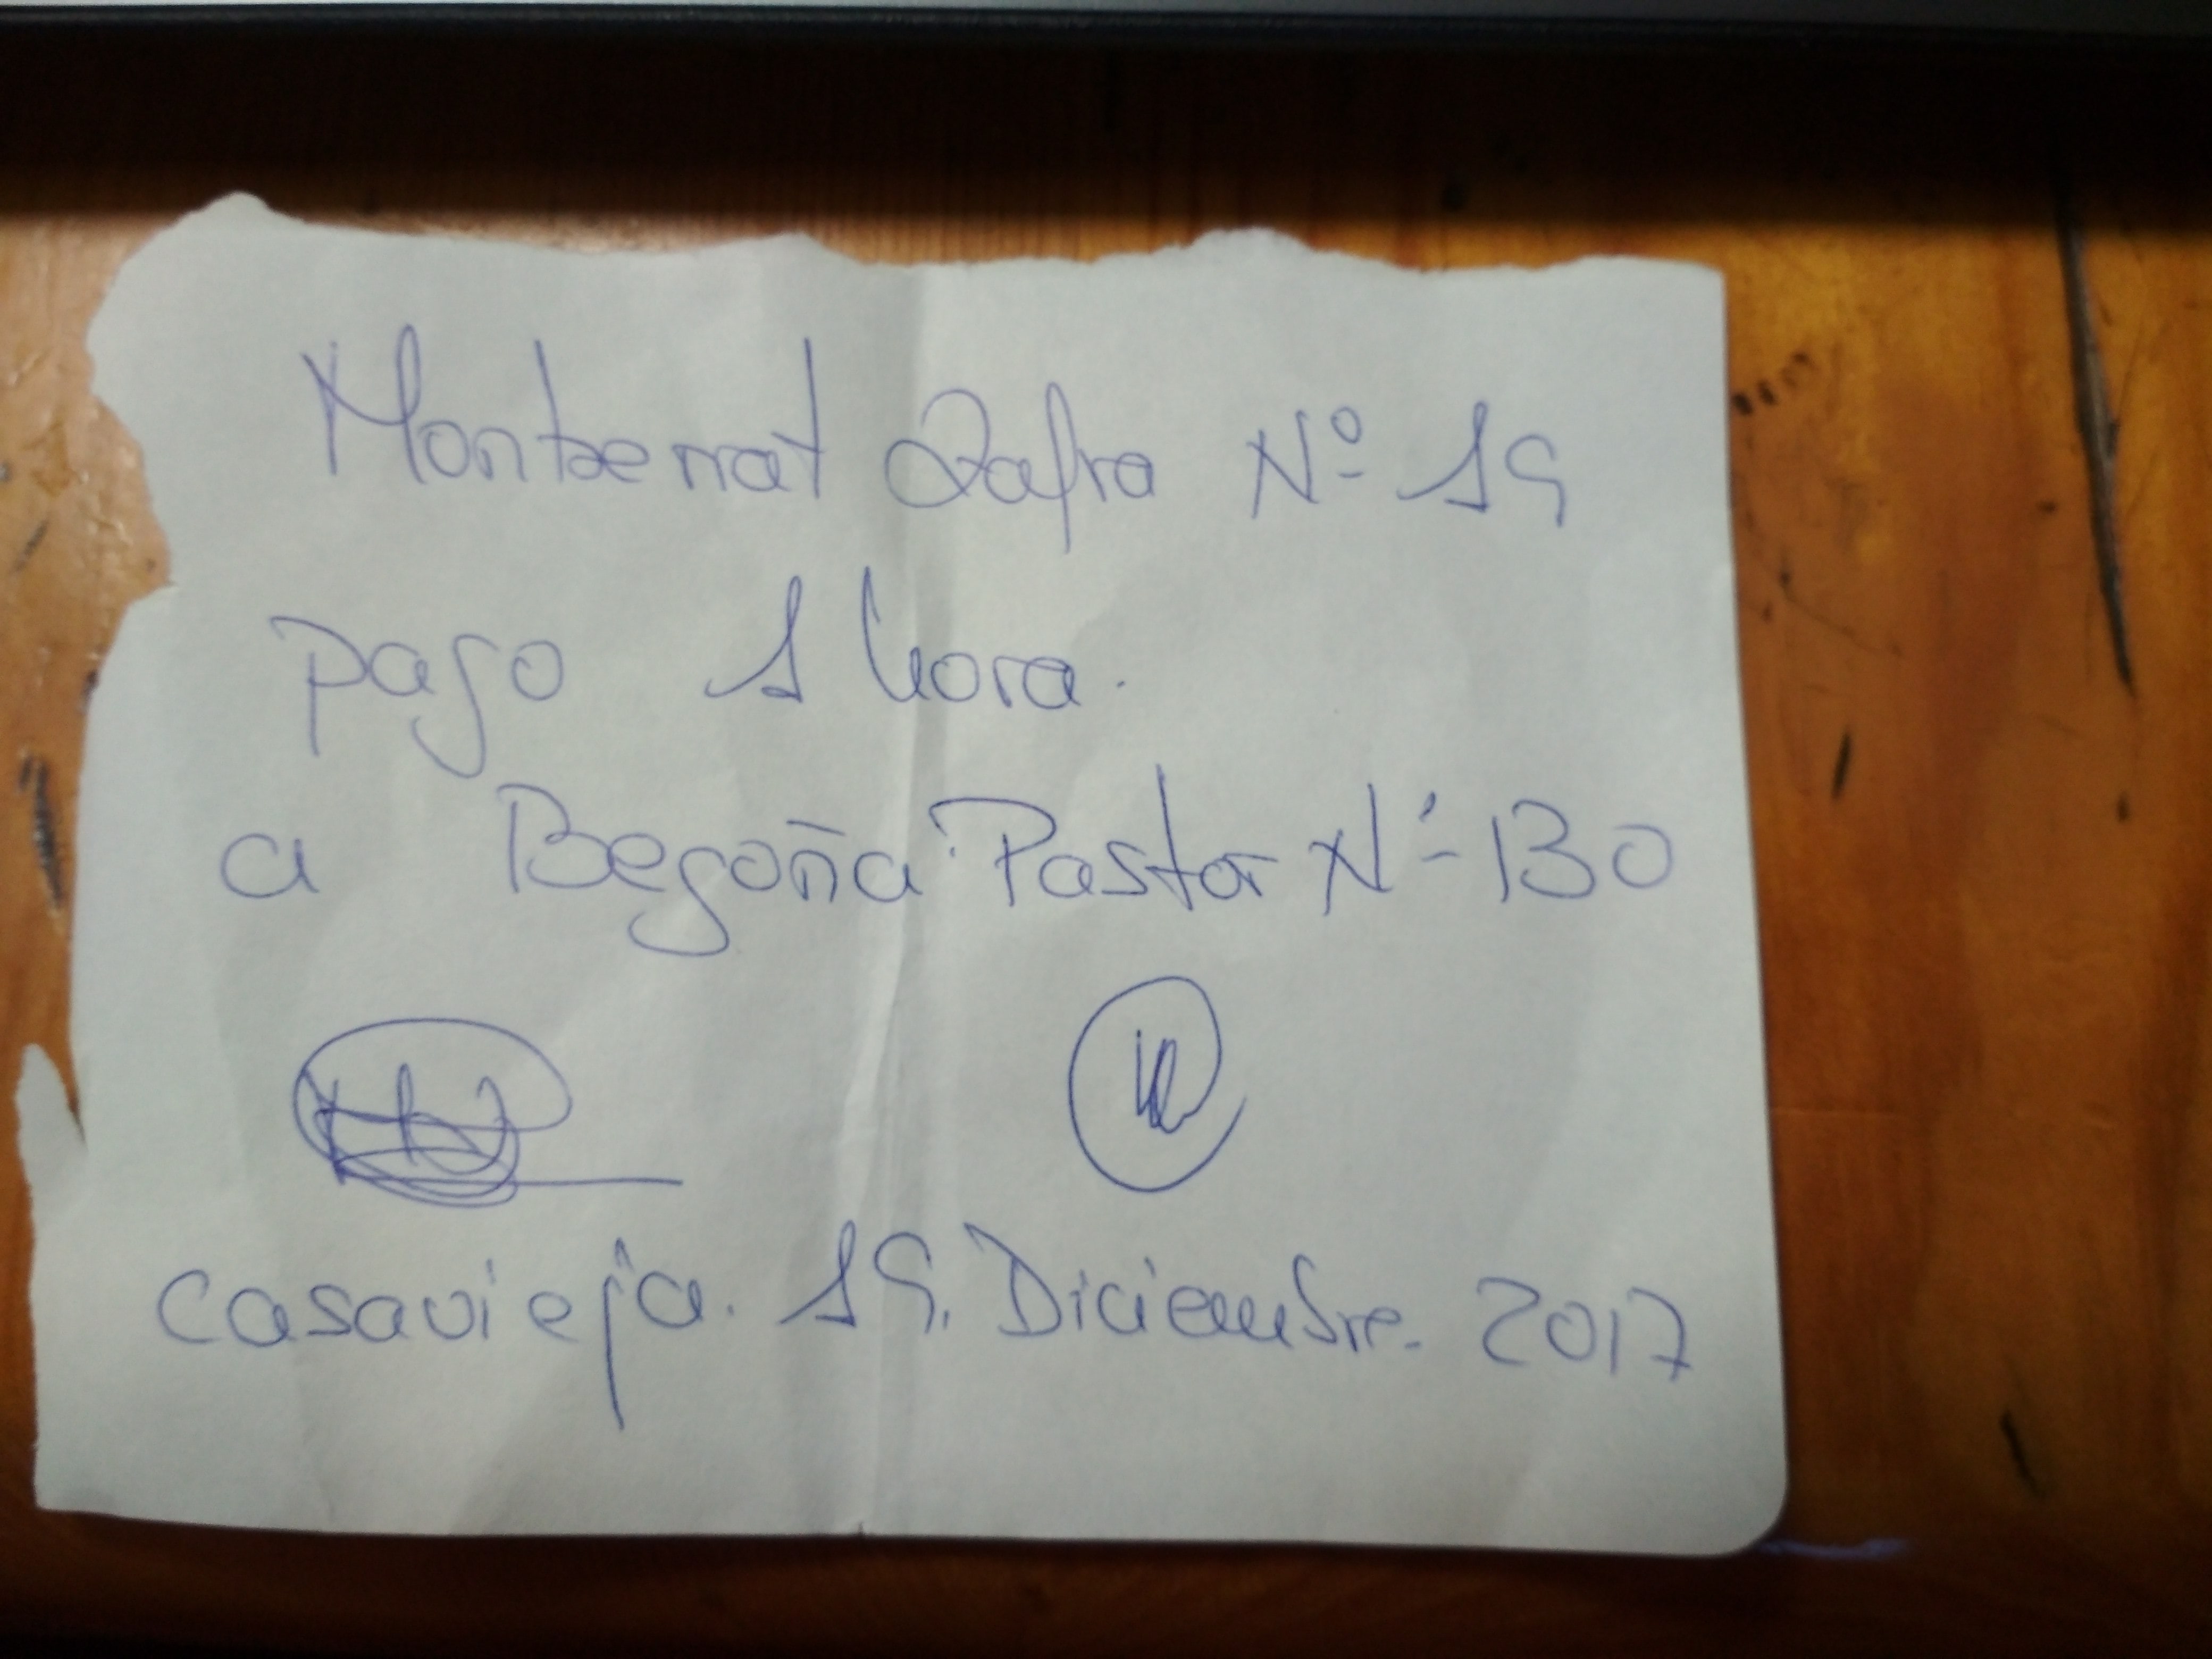 Montserrat Zafra Nº 19
pago 1 hora.
a Begoña Pastor Nº 130
casavieja. 19. Diciembre. 2017